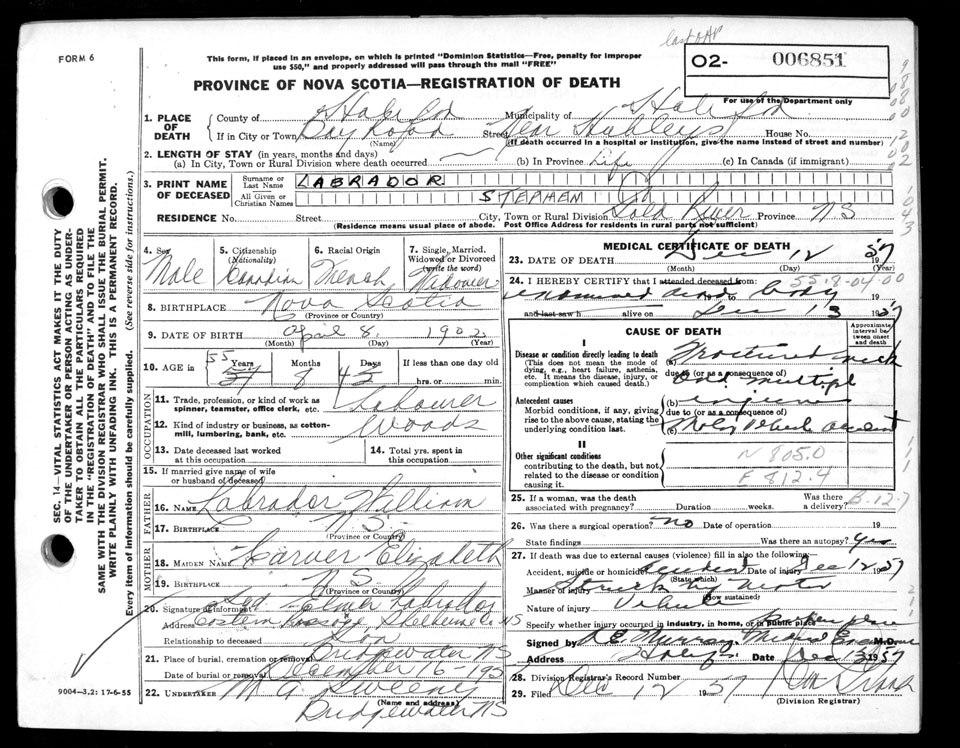 FORM 6
This form, if placed in an envelope, on which is printed "Dominion Statistics—Free, penalty for improper
use $50," and properly addressed will pass through the mail "FREE"
O2- 006851
For use of the Department only
PROVINCE OF NOVA SCOTIA—REGISTRATION OF DEATH
1. PLACE OF DEATH
County of Municipality of
If in City or Town Bay Road Street Near Hubleys House No.
(Name) (If death occurred in a hospital or institution, give the name instead of street and number)
2. LENGTH OF STAY (in years, months and days)
(a) In City, Town or Rural Division where death occurred (b) In Province Life (c) In Canada (if immigrant)
3. PRINT NAME OF DECEASED
Surname or Last Name LABRADOR
All Given or Christian Names STEPHEN
RESIDENCE No. Street City, Town or Rural Division Gold River Province NS
(Residence means usual place of abode. Post Office Address for residents in rural parts not sufficient)
4. Sex Male
5. Citizenship (Nationality) Canadian
6. Racial Origin French
7. Single, Married, Widowed or Divorced (write the word) Widower
8. BIRTHPLACE Nova Scotia
(Province or Country)
9. DATE OF BIRTH April 8, 1902
(Month) (Day) (Year)
10. AGE in 55 Years Months 8 Days If less than one day old
hrs. or min.
OCCUPATION
11. Trade, profession, or kind of work as spinner, teamster, office clerk, etc. Labourer
12. Kind of industry or business, as cotton-mill, lumbering, bank, etc. Woods
13. Date deceased last worked at this occupation
14. Total yrs. spent in this occupation
15. If married give name of wife or husband of deceased
FATHER
16. NAME Labrador William
17. BIRTHPLACE N.S.
(Province or Country)
MOTHER
18. MAIDEN NAME Carver Elizabeth
19. BIRTHPLACE N.S.
(Province or Country)
20. Signature of informant Sgd. Elmer Labrador
Address Passage, Shelburne Co NS
Relationship to deceased Son
21. Place of burial, cremation or removal Bridgewater NS
Date of burial or removal December 16-195
22. UNDERTAKER M A Sweeney
(Name and Address)
Bridgewater NS
9004—3.2: 17-6-55
MEDICAL CERTIFICATE OF DEATH
23. DATE OF DEATH Dec 12 1957
(Month) (Day) (Year)
24. I HEREBY CERTIFY that I attended deceased from: 558-04-00
examined dead body 19
and last saw h alive on Dec 13 1957
CAUSE OF DEATH
Approximate interval between onset and death
I
Disease or condition directly leading to death
(This does not mean the mode of dying, e.g., heart failure, asthenia, etc. It means the disease, injury, or complication which caused death.)
(a) Fractured neck
due to (or as a consequence of)
and multiple
Antecedent causes
Morbid conditions, if any, giving rise to the above cause, stating the underlying condition last.
(b) injuries
due to (or as a consequence of)
(c) Motor Vehicle accident
II
Other significant conditions
contributing to the death, but not related to the disease or condition causing it.
N 805.0
E 812.4
25. If a woman, was the death associated with pregnancy? Duration weeks. Was there a delivery?
26. Was there a surgical operation? no Date of operation 19
State findings Was there an autopsy? yes
27. If death was due to external causes (violence) fill in also the following:—
Accident, suicide or homicide? accident Date of injury Dec 12 1957
(State which)
Manner of injury Struck by motor
(How sustained)
Nature of injury Vehicle
Specify whether injury occurred in industry, in home, or in public place
Signed by Murray, Medical M.D.
Address Halifax Date Dec 13 1957
28. Division Registrar's Record Number
29. Filed Dec 12 1957
(Division Registrar)
SEC. 14—VITAL STATISTICS ACT MAKES IT THE DUTY
OF THE UNDERTAKER OR PERSON ACTING AS UNDER-
TAKER TO OBTAIN ALL THE PARTICULARS REQUIRED
IN THE "REGISTRATION OF DEATH" AND TO FILE THE
SAME WITH THE DIVISION REGISTRAR WHO SHALL ISSUE THE BURIAL PERMIT.
WRITE PLAINLY WITH UNFADING INK. THIS IS A PERMANENT RECORD.
Every item of information should be carefully supplied. (See reverse side for instructions.)